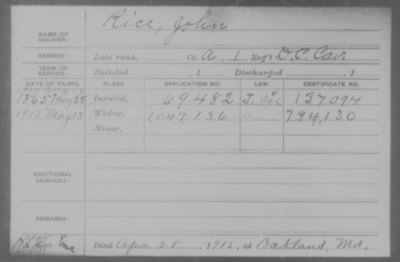 NAME OF SOLDIER: Rice, John
SERVICE: Late rank, Co. A, 1 Reg't D.C. Cav.
TERM OF SERVICE: Enlisted , 1 Discharged , 1
DATE OF FILING. CLASS. APPLICATION NO. LAW. CERTIFICATE NO.
1865 May 25 Invalid, 69482 137094
1915 May 13 Widow, 1,047,136 794,130
Minor,
ADDITIONAL SERVICES:
REMARKS:
Died Apr 28, 1915, at Oakland, Md.